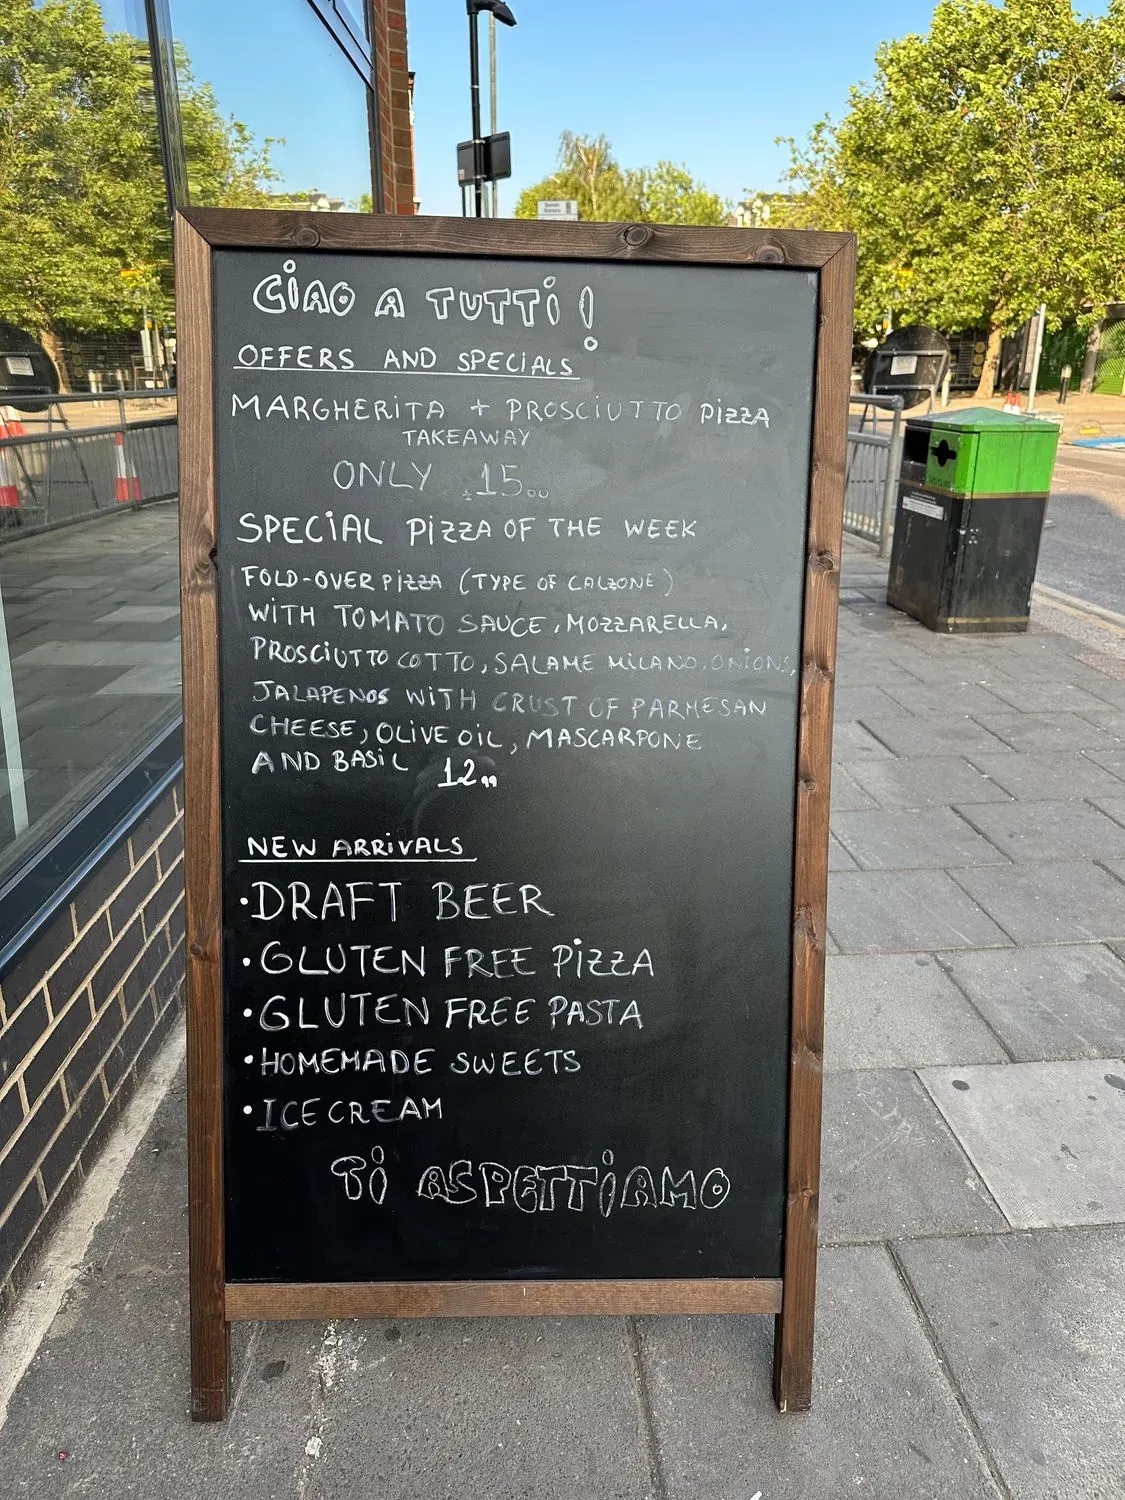 CIAO A TUTTI!
OFFERS AND SPECIALS
MARGHERITA + PROSCIUTTO PIZZA
TAKEAWAY
ONLY £15.00
SPECIAL PIZZA OF THE WEEK
FOLD-OVER PIZZA (TYPE OF CALZONE)
WITH TOMATO SAUCE, MOZZARELLA,
PROSCIUTTO COTTO, SALAME MILANO, ONIONS,
JALAPENOS WITH CRUST OF PARMESAN
CHEESE, OLIVE OIL, MASCARPONE
AND BASIL 12.99
NEW ARRIVALS
• DRAFT BEER
• GLUTEN FREE PIZZA
• GLUTEN FREE PASTA
• HOMEMADE SWEETS
• ICE CREAM
TI ASPETTIAMO